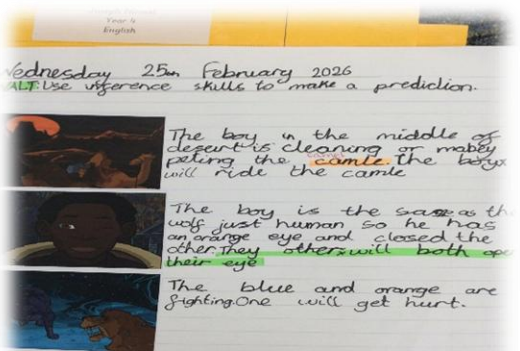 Year 4
English
Wednesday 25th February 2026
WALT: Use inference skills to make a prediction.
The boy in the middle of
desert is cleaning or mabey
peting the camle. The boy
will ride the camle
The boy is the same as the
wolf just human so he has
an orange eye and closed the
other. They others will both open
their eye
The blue and orange are
fighting. One will get hurt.